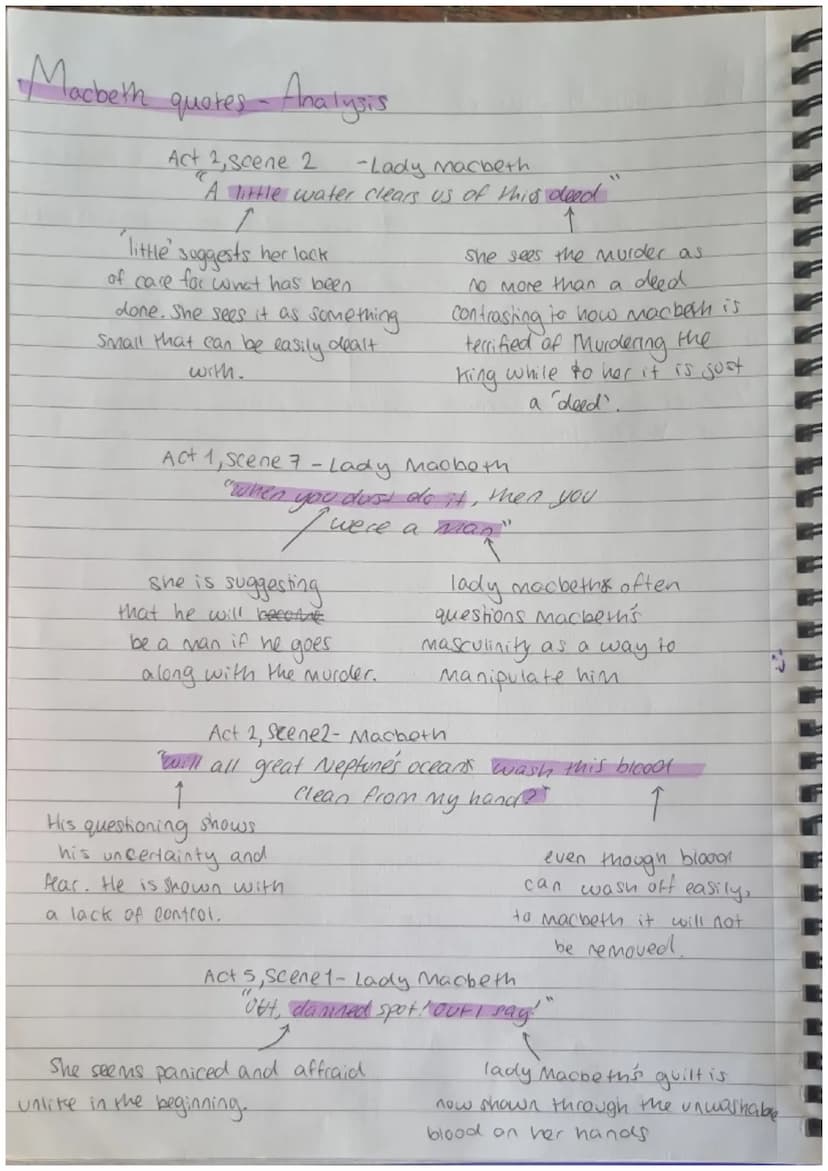 Macbeth quotes - Analysis
Act 2, scene 2 - Lady Macbeth
"A little water clears us of this deed"
'little' suggests her lack
of care for what has been
done. She sees it as something
small that can be easily dealt
with.
she sees the murder as
no more than a deed
contrasting to how macbeth is
terrified of Murdering the
King while to her it is just
a 'deed'.
Act 1, scene 7 - Lady Macbeth
"when you durst do it, then you
were a man"
she is suggesting
that he will become
be a man if he goes
along with the murder.
lady macbeth often
questions Macbeth's
masculinity as a way to
manipulate him
Act 2, Scene 2 - Macbeth
"will all great Neptune's oceans wash this blood
clean from my hand?"
His questioning shows
his uncertainty and
fear. He is shown with
a lack of control.
even though blood
can wash off easily,
to macbeth it will not
be removed.
Act 5, Scene 1 - Lady Macbeth
"Out, damned spot! Out I say!"
She seems paniced and affraid
unlike in the beginning.
lady Macbeth's guilt is
now shown through the unwashable
blood on her hands